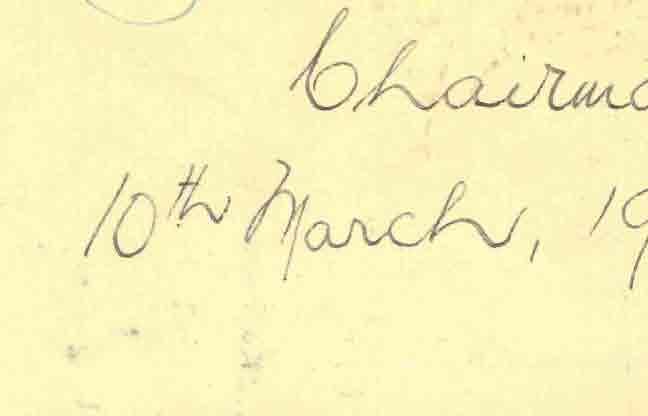 Chairma
10th March, 19